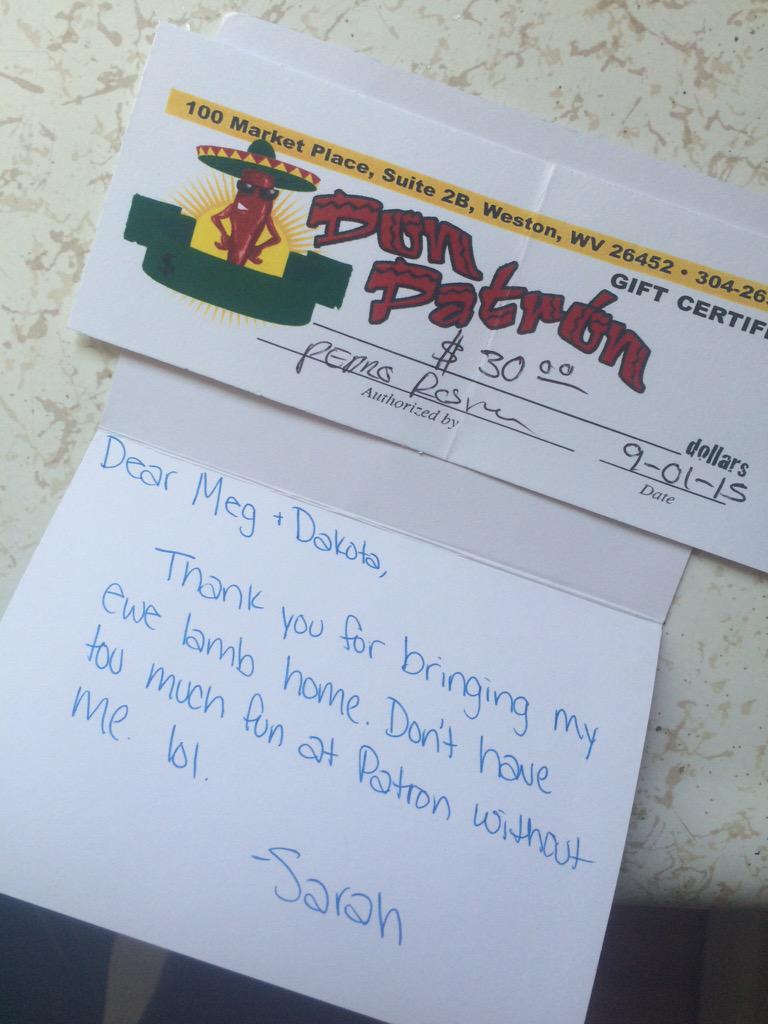 100 Market Place, Suite 2B, Weston, WV 26452 • 304-26
Don
Patrón
GIFT CERTIF
$
$ 30 00
dollars
Authorized by
9-01-15
Date
Dear Meg + Dakota,
Thank you for bringing my
ewe lamb home. Don't have
too much fun at Patron without
me. lol.
-Sarah